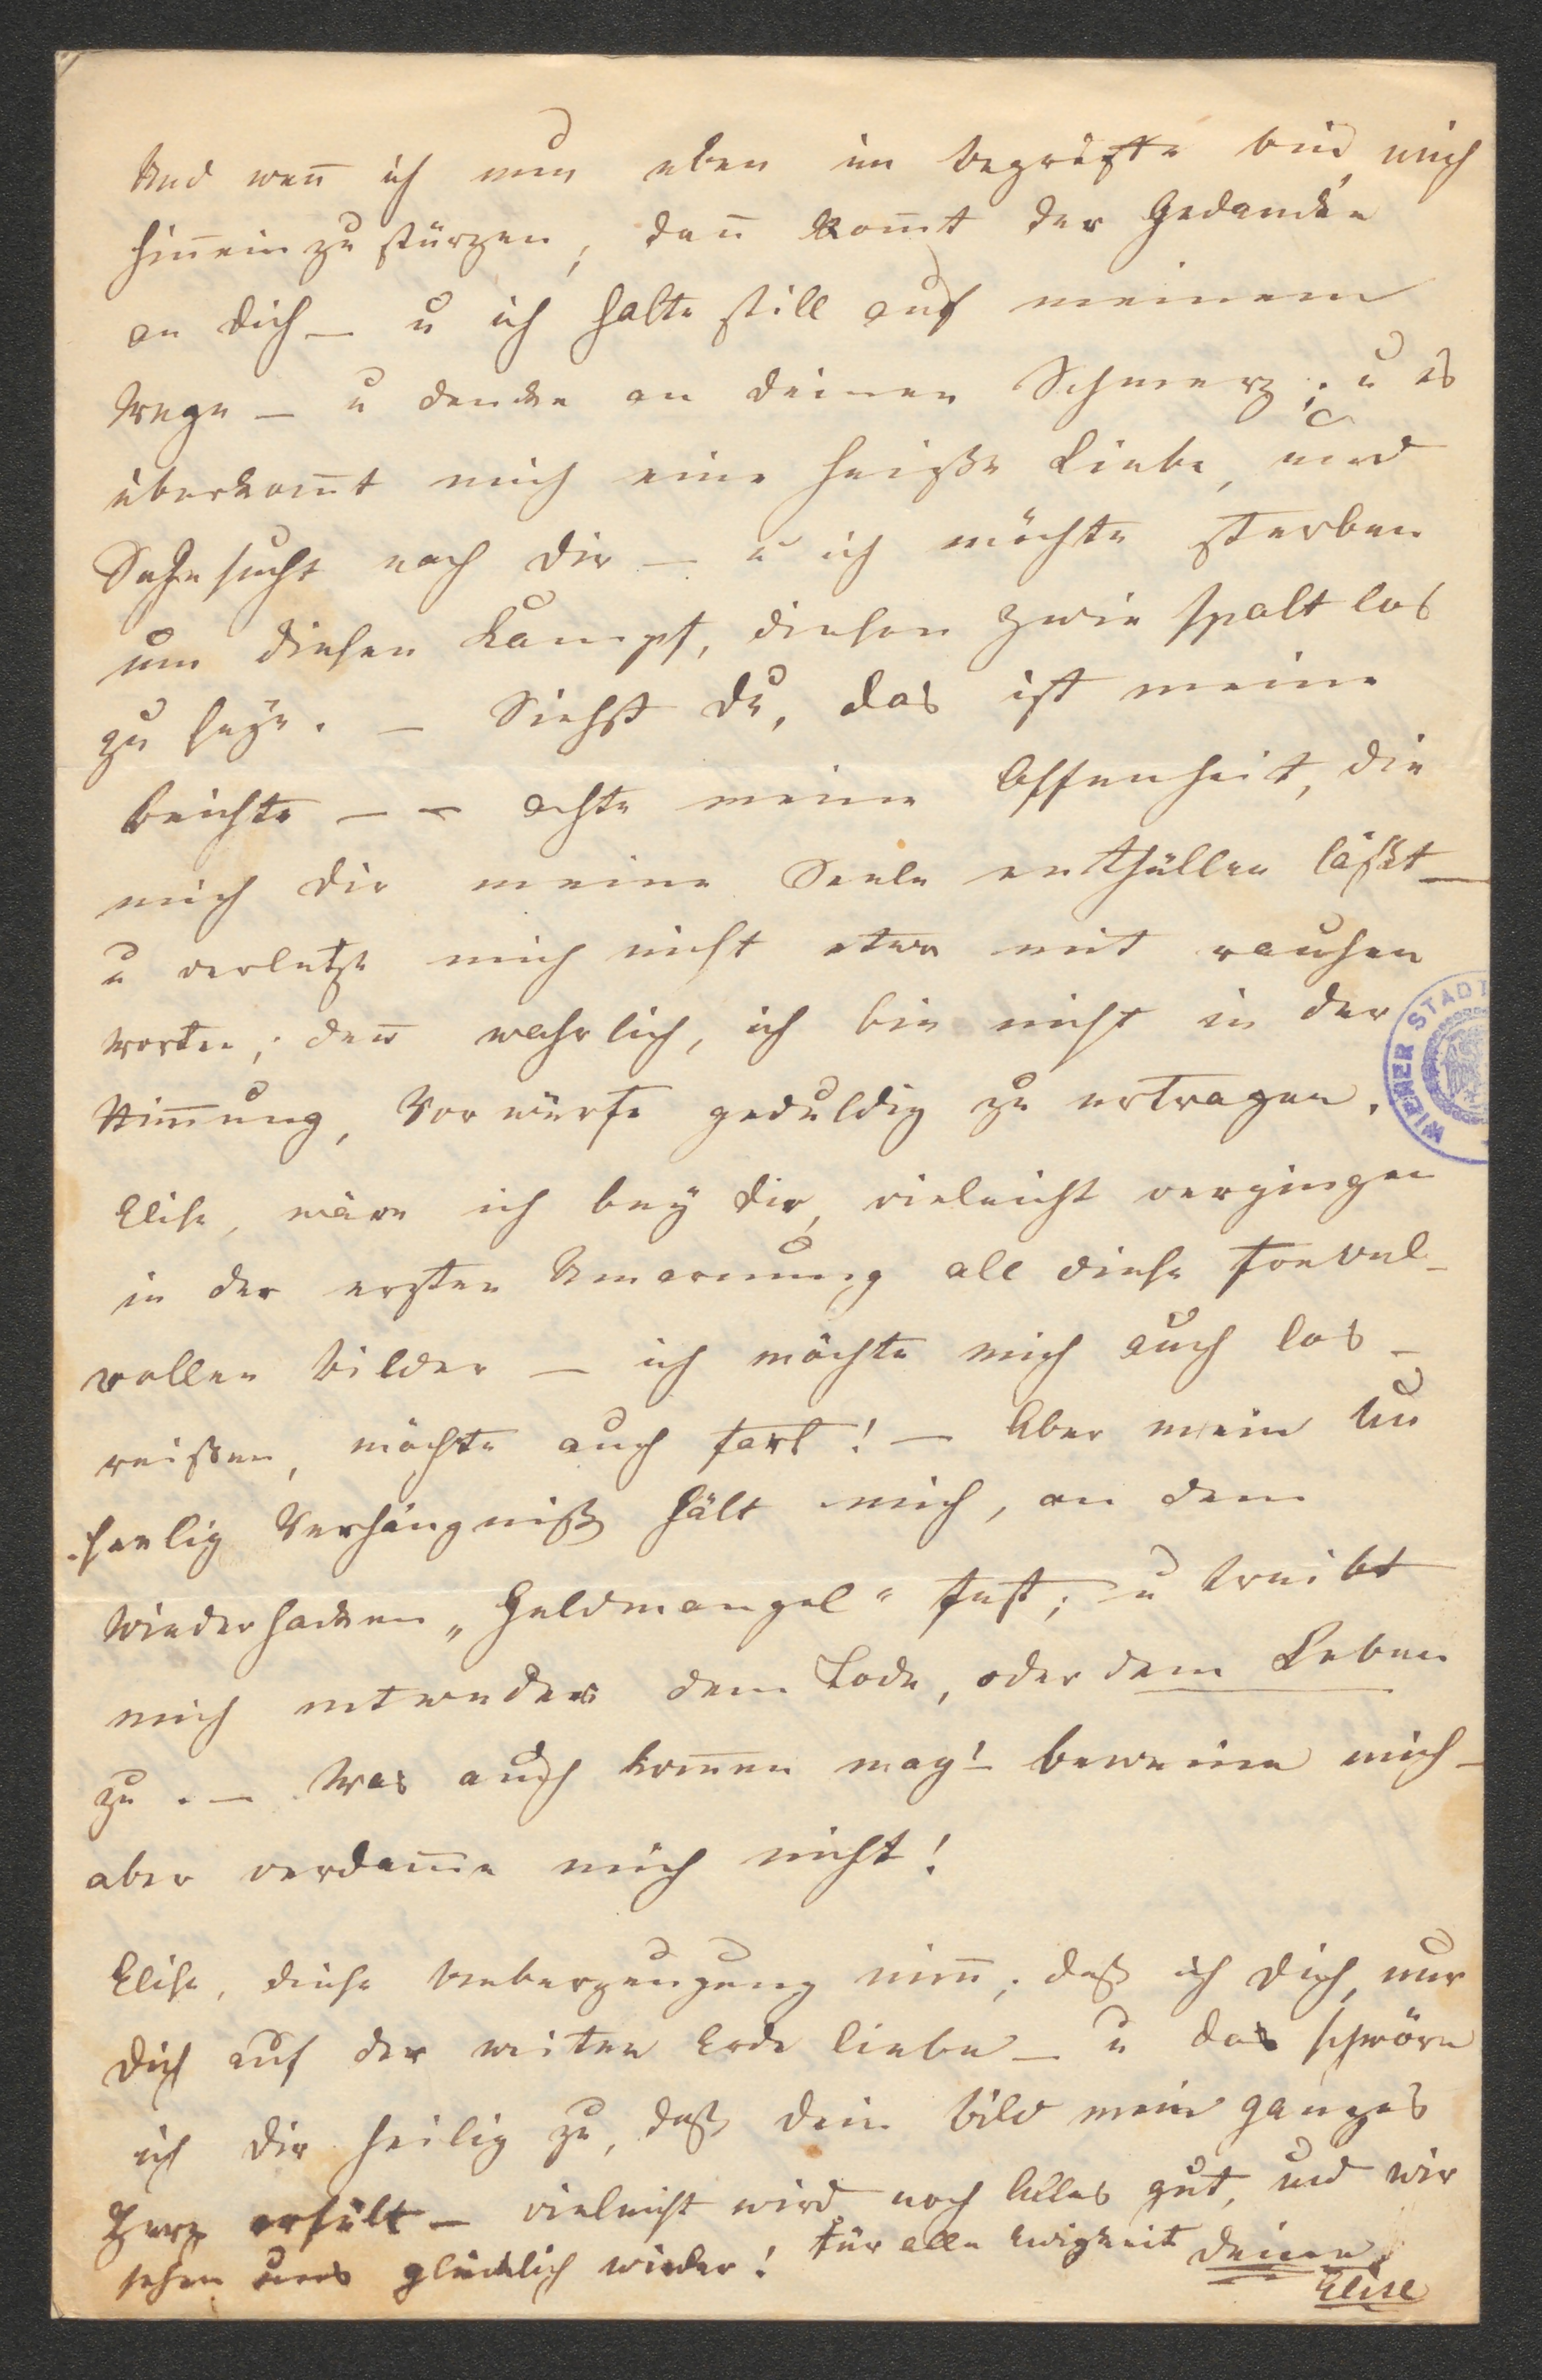 Und wen̄ ich nun eben im Begriffe bin, mich
hinnein zu stürzen, dan̄ kom̄t der Gedancke
an dich – u ich halte still auf meinem
Wege – u dencke an deinen Schmerz; u es
überkom̄t mich eine heiße Liebe, und
Sehnsucht nach dir – u ich möchte sterben
um diesen Kampf, diesen Zwiespalt los
zu seyn. – Siehst du, das ist meine
Beichte – – achte meine Offenheit, die
mich dir meine Seele enthüllen läßt –
u verletze mich nicht etwa mit rauhen
Worten; den̄ wahrlich, ich bin nicht in der
Stim̄ung, Vorwürfe geduldig zu ertragen.
Elise, wäre ich bey dir, vieleicht vergingen
in der ersten Umarmung all diese frevel-
vollen Bilder – ich möchte mich auch los-
reißen, möchte auch fort! – Aber mein Un
seelig Verhängniß hält mich, an dem
Wiederhacken „Geldmangel“ fest; u treibt
mich entweder dem Tode, oder dem Leben
zu. – Was auch kom̄en mag! – beweine mich –
aber verdam̄e mich nicht!
Elise, diese Ueberzeugung nim̄; daß ich dich, nur
dich auf der weiten Erde liebe – u das schwöre
ich dir heilig zu, daß dein Bild mein ganzes
Herz erfült – vieleicht wird noch Alles gut, und wir
sehen uns glücklich wieder! Für alle Ewigkeit deine
Elise
WIENER STADT